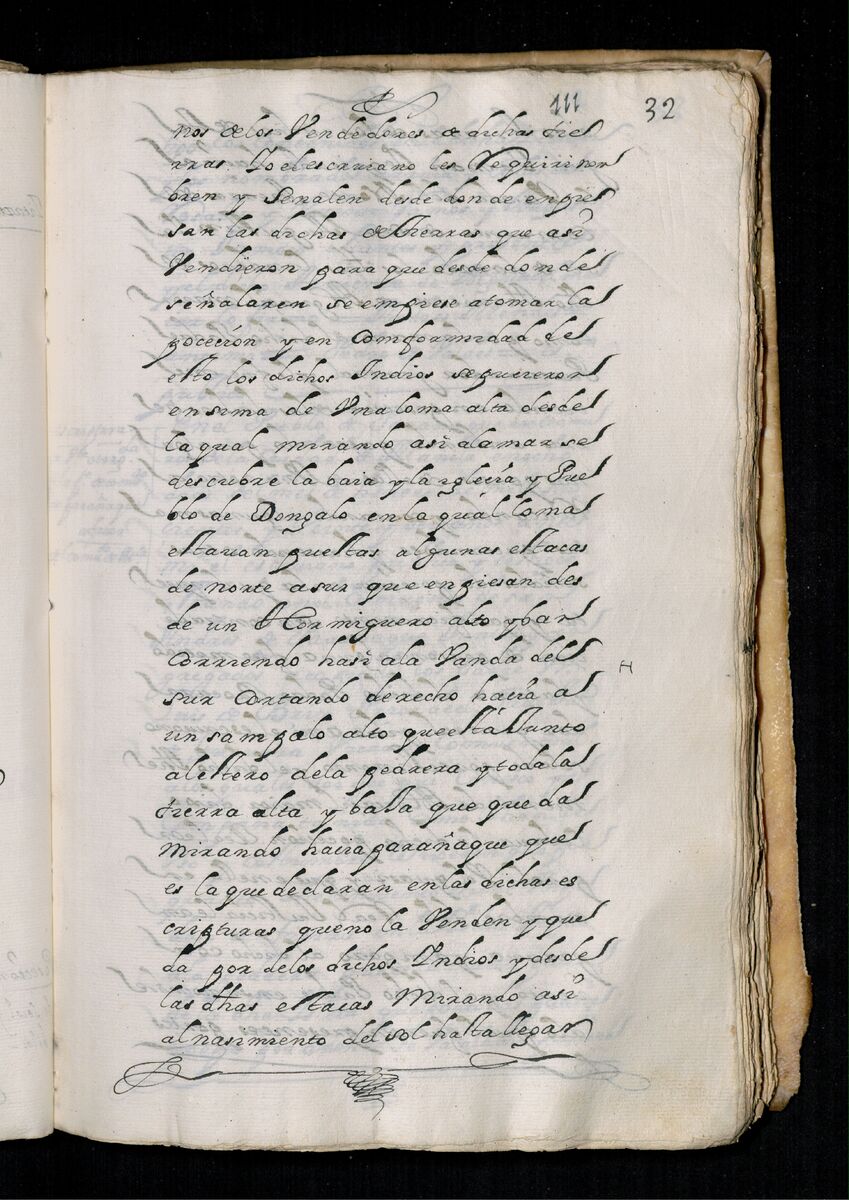 111 32
nos de los Vendedores de dichas tie
rras. Yo el escriuano les Requiri nom
bren y señalen desde donde empie
san las dichas de tierras que asi
Vendieron para que desde donde
señalaren se empiese a tomar la
poceción y en comformidad de
esto los dichos Indios se pucieron
ensima de Vna loma alta desde
la qual mirando asi a la mar se
descubre la baia y la yglecia y Pue
blo de Dongalo en la qual loma
estauan puestas algunas estacas
de norte a sur que empiesan des
de un Hormiguero alto y ban
Corriendo hasi a la Vanda del
sur Cortando derecho hacia a
un sampalo alto que está Junto
al estero de la pedrera y toda la
tierra alta y baxa que queda
Mirando hacia parañaque que
es la que declaran en las dichas es
cripturas que no la Venden y que
da por de los dichos Indios y desde
las dhas estacas Mirando asi
al nasimiento del sol hasta llegar
H